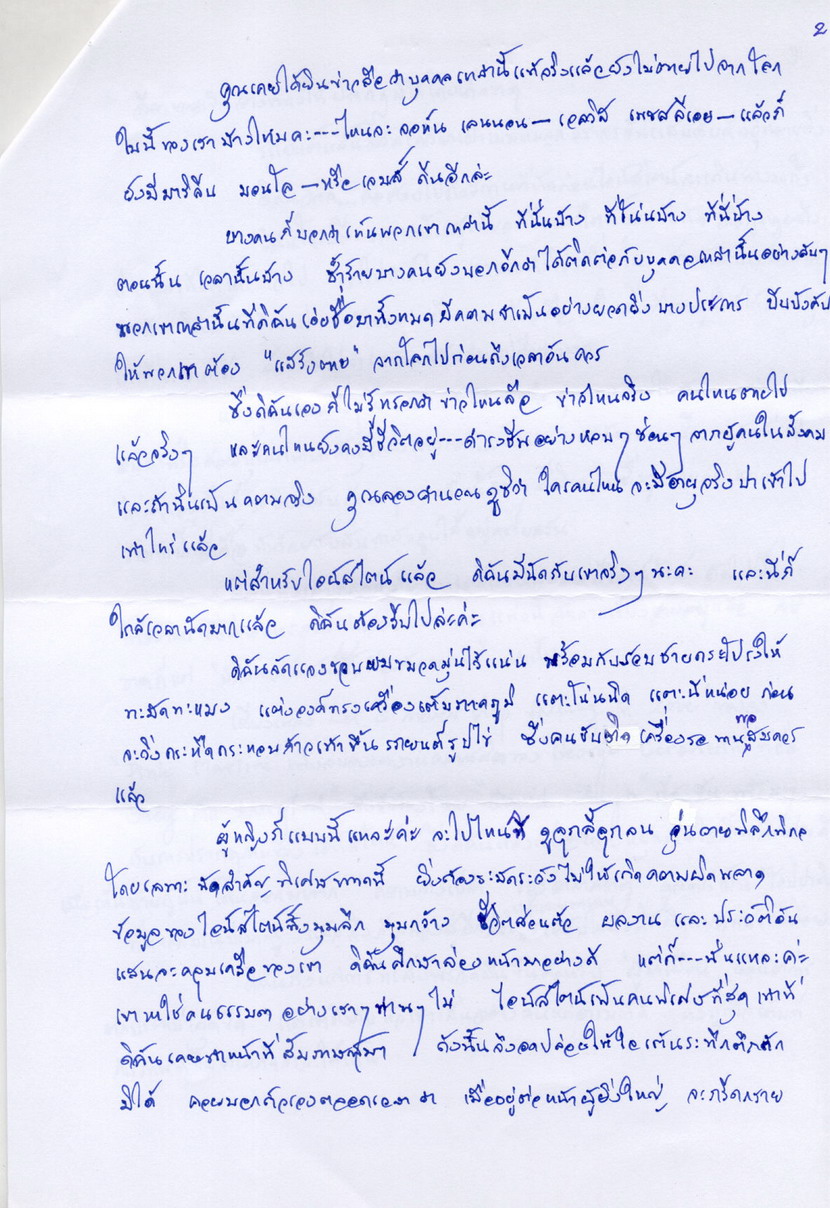 2
คุณเคยได้ยินข่าวลือว่าบุคคลเหล่านี้แท้จริงแล้วยังไม่ตายไปจากโลก
ใบนี้ของเราบ้างไหมคะ---ไหนจะ จอห์น เลนนอน—เอลวิส เพรสลี่เอย—แล้วก็
ยังมีมาริลีน มอนโร—หรือเจมส์ ดีนอีกล่ะ
บางคนก็บอกว่าเห็นพวกเขาเหล่านี้ ที่นั่นบ้าง ที่โน่นบ้าง ที่นี่บ้าง
ตอนนั้น เวลานั้นบ้าง ซ้ำร้ายบางคนยังบอกอีกว่าได้ติดต่อกับบุคคลเหล่านั้นอย่างลับๆ
พวกเขาเหล่านั้นที่ดิฉันเอ่ยชื่อมาทั้งหมดมีความจำเป็นอย่างยวดยิ่งบางประการ บีบบังคับ
ให้พวกเขาต้อง "แสร้งตาย" จากโลกไปก่อนถึงเวลาอันควร
ซึ่งดิฉันเองก็ไม่รู้หรอกว่าข่าวไหนลือ ข่าวไหนจริง คนไหนตายไป
แล้วจริงๆ และคนไหนยังคงมีชีวิตอยู่---ดำรงชีพอย่างหลบๆซ่อนๆจากผู้คนในสังคม
และถ้านั่นเป็นความจริง คุณลองคำนวณดูซิว่า ใครคนไหนจะมีอายุจริงปาเข้าไป
เท่าไหร่แล้ว
แต่สำหรับไอน์สไตน์แล้ว ดิฉันมีนัดกับเขาจริงๆนะคะ และนี่ก็
ใกล้เวลานัดมากแล้ว ดิฉันต้องรีบไปล่ะค่ะ
ดิฉันจัดแจงรวบผมขมวดมุ่นไว้แน่น พร้อมกับรวบชายกระโปรงให้
ทะมัดทะแมง แต่งองค์ทรงเครื่องเต็มภาคภูมิ แตะโน่นนิด แตะนี่หน่อย ก่อน
จะวิ่งกระหืดกระหอบก้าวเท้าขึ้นรถยนต์รูปไข่ ซึ่งคนขับติดเครื่องรอพอสมควร
แล้ว
ผู้หญิงก็แบบนี้แหละค่ะ จะไปไหนที ดูลุกลี้ลุกลน วุ่นวายพิลึกพิกล
โดยเฉพาะ นัดสำคัญพิเศษภาคนี้ ยิ่งต้องระมัดระวังไม่ให้เกิดความผิดพลาด
ข้อมูลของไอน์สไตน์ทั้งมุมลึก มุมกว้าง ชีวิตส่วนตัว ผลงาน และประวัติอัน
แสนจะคลุมเครือของเขา ดิฉันศึกษาล่วงหน้ามาอย่างดี แต่ก็---นั่นแหละค่ะ
เขาหาใช่คนธรรมดาอย่างเราๆท่านๆไม่ ไอน์สไตน์เป็นคนพิเศษที่สุดเท่าที่
ดิฉันเคยทำหน้าที่สัมภาษณ์มา ดังนั้นจึงอดปล่อยให้ใจเต้นระทึกตึกตัก
มิได้ คอยบอกตัวเองตลอดเวลาว่า เมื่ออยู่ต่อหน้าผู้ยิ่งใหญ่ จะกรีดกราย